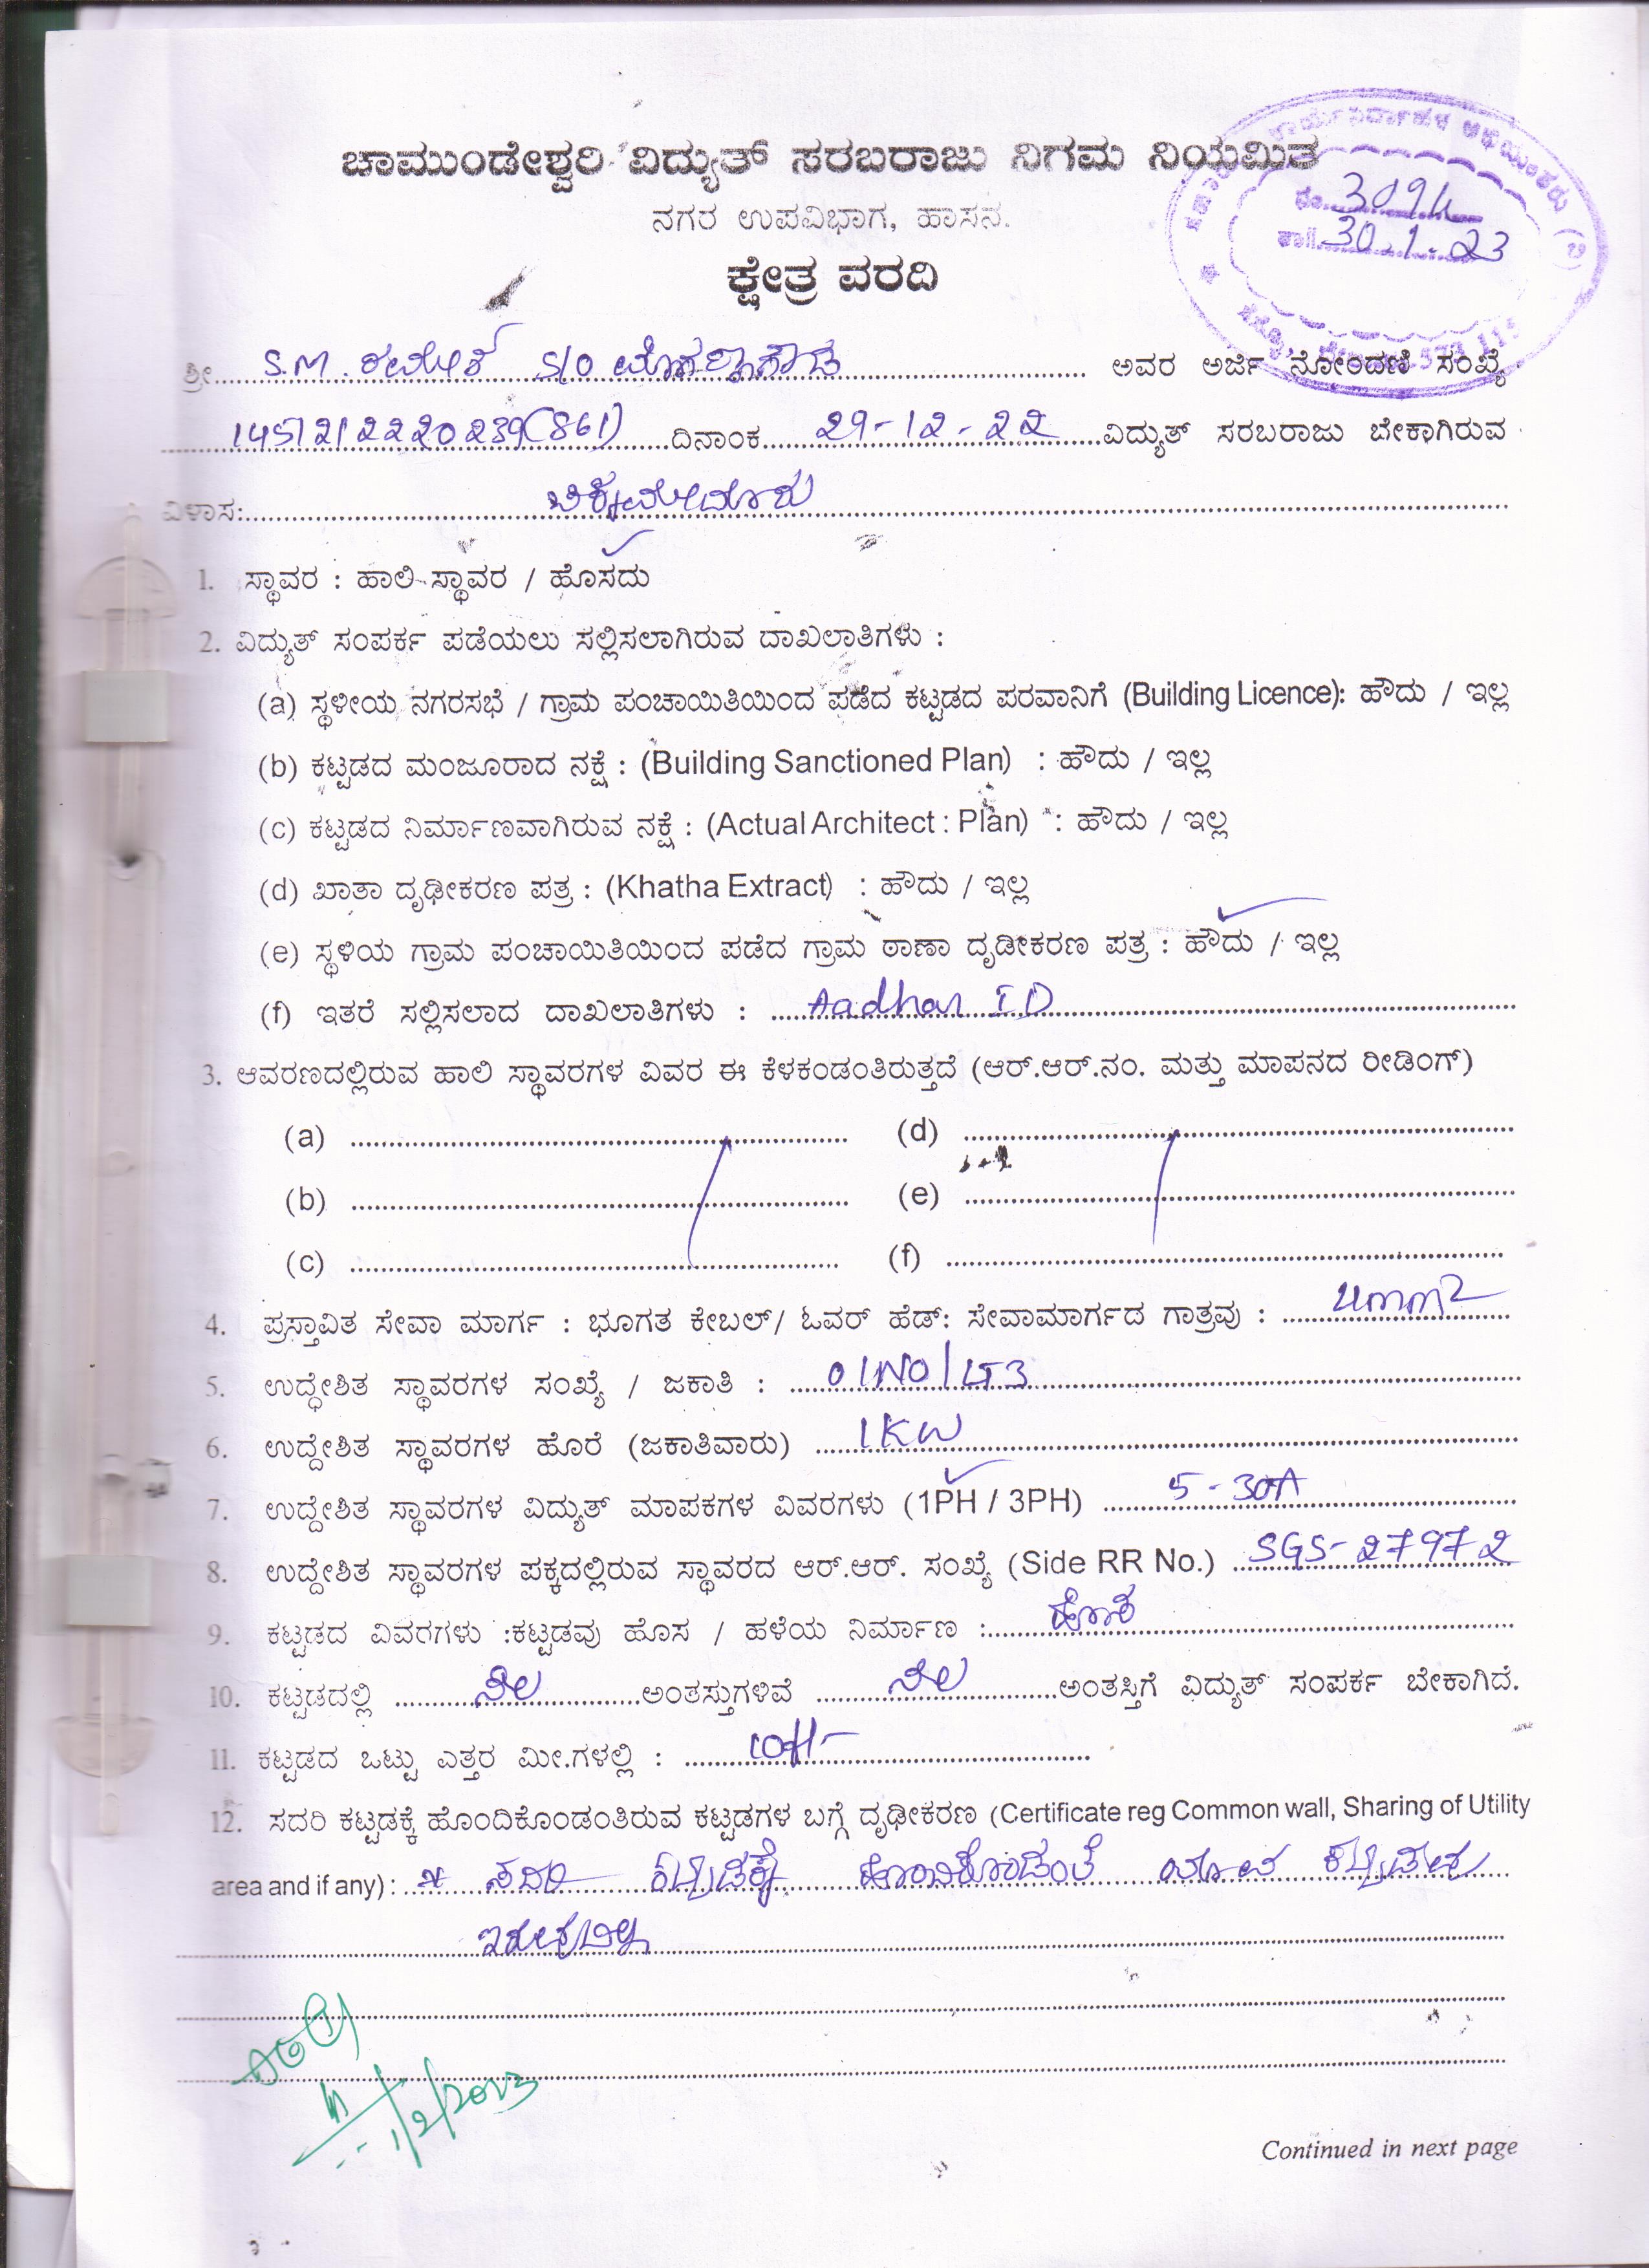 ಚಾಮುಂಡೇಶ್ವರಿ ವಿದ್ಯುತ್ ಸರಬರಾಜು ನಿಗಮ ನಿಯಮಿತ
ನಗರ ಉಪವಿಭಾಗ, ಹಾಸನ.
ಕ್ಷೇತ್ರ ವರದಿ
3094
30.1.23
ಶ್ರೀ S.M. S/O ಅವರ ಅರ್ಜಿ ನೋಂದಣಿ ಸಂಖ್ಯೆ
1451212220239(861) ದಿನಾಂಕ 29-12-22 ವಿದ್ಯುತ್ ಸರಬರಾಜು ಬೇಕಾಗಿರುವ
ವಿಳಾಸ:
1. ಸ್ಥಾವರ : ಹಾಲಿ ಸ್ಥಾವರ / ಹೊಸದು
2. ವಿದ್ಯುತ್ ಸಂಪರ್ಕ ಪಡೆಯಲು ಸಲ್ಲಿಸಲಾಗಿರುವ ದಾಖಲಾತಿಗಳು :
(a) ಸ್ಥಳೀಯ ನಗರಸಭೆ / ಗ್ರಾಮ ಪಂಚಾಯಿತಿಯಿಂದ ಪಡೆದ ಕಟ್ಟಡದ ಪರವಾನಿಗೆ (Building Licence): ಹೌದು / ಇಲ್ಲ
(b) ಕಟ್ಟಡದ ಮಂಜೂರಾದ ನಕ್ಷೆ : (Building Sanctioned Plan) : ಹೌದು / ಇಲ್ಲ
(c) ಕಟ್ಟಡದ ನಿರ್ಮಾಣವಾಗಿರುವ ನಕ್ಷೆ : (Actual Architect : Plan) : ಹೌದು / ಇಲ್ಲ
(d) ಖಾತಾ ದೃಢೀಕರಣ ಪತ್ರ : (Khatha Extract) : ಹೌದು / ಇಲ್ಲ
(e) ಸ್ಥಳಿಯ ಗ್ರಾಮ ಪಂಚಾಯಿತಿಯಿಂದ ಪಡೆದ ಗ್ರಾಮ ಠಾಣಾ ದೃಡೀಕರಣ ಪತ್ರ : ಹೌದು / ಇಲ್ಲ
(f) ಇತರೆ ಸಲ್ಲಿಸಲಾದ ದಾಖಲಾತಿಗಳು : Aadhar ID
3. ಆವರಣದಲ್ಲಿರುವ ಹಾಲಿ ಸ್ಥಾವರಗಳ ವಿವರ ಈ ಕೆಳಕಂಡಂತಿರುತ್ತದೆ (ಆರ್.ಆರ್.ನಂ. ಮತ್ತು ಮಾಪನದ ರೀಡಿಂಗ್)
(a) (d)
(b) (e)
(c) (f)
4. ಪ್ರಸ್ತಾವಿತ ಸೇವಾ ಮಾರ್ಗ : ಭೂಗತ ಕೇಬಲ್/ ಓವರ್ ಹೆಡ್: ಸೇವಾಮಾರ್ಗದ ಗಾತ್ರವು : 4mm2
5. ಉದ್ಧೇಶಿತ ಸ್ಥಾವರಗಳ ಸಂಖ್ಯೆ / ಜಕಾತಿ : 01NO/LT3
6. ಉದ್ದೇಶಿತ ಸ್ಥಾವರಗಳ ಹೊರೆ (ಜಕಾತಿವಾರು) 1KW
7. ಉದ್ದೇಶಿತ ಸ್ಥಾವರಗಳ ವಿದ್ಯುತ್ ಮಾಪಕಗಳ ವಿವರಗಳು (1PH / 3PH) 5-30A
8. ಉದ್ದೇಶಿತ ಸ್ಥಾವರಗಳ ಪಕ್ಕದಲ್ಲಿರುವ ಸ್ಥಾವರದ ಆರ್.ಆರ್. ಸಂಖ್ಯೆ (Side RR No.) SGS-27972
9. ಕಟ್ಟಡದ ವಿವರಗಳು :ಕಟ್ಟಡವು ಹೊಸ / ಹಳೆಯ ನಿರ್ಮಾಣ : ಹೊಸ
10. ಕಟ್ಟಡದಲ್ಲಿ ನೆಲ ಅಂತಸ್ತುಗಳಿವೆ ನೆಲ ಅಂತಸ್ತಿಗೆ ವಿದ್ಯುತ್ ಸಂಪರ್ಕ ಬೇಕಾಗಿದೆ.
11. ಕಟ್ಟಡದ ಒಟ್ಟು ಎತ್ತರ ಮೀ.ಗಳಲ್ಲಿ : 10ft
12. ಸದರಿ ಕಟ್ಟಡಕ್ಕೆ ಹೊಂದಿಕೊಂಡಂತಿರುವ ಕಟ್ಟಡಗಳ ಬಗ್ಗೆ ದೃಢೀಕರಣ (Certificate reg Common wall, Sharing of Utility
area and if any) : ಸದರಿ ಕಟ್ಟಡಕ್ಕೆ ಹೊಂದಿಕೊಂಡಂತೆ ಯಾವ ಕಟ್ಟಡವು
ಇರುವುದಿಲ್ಲ
1/2/2023
Continued in next page